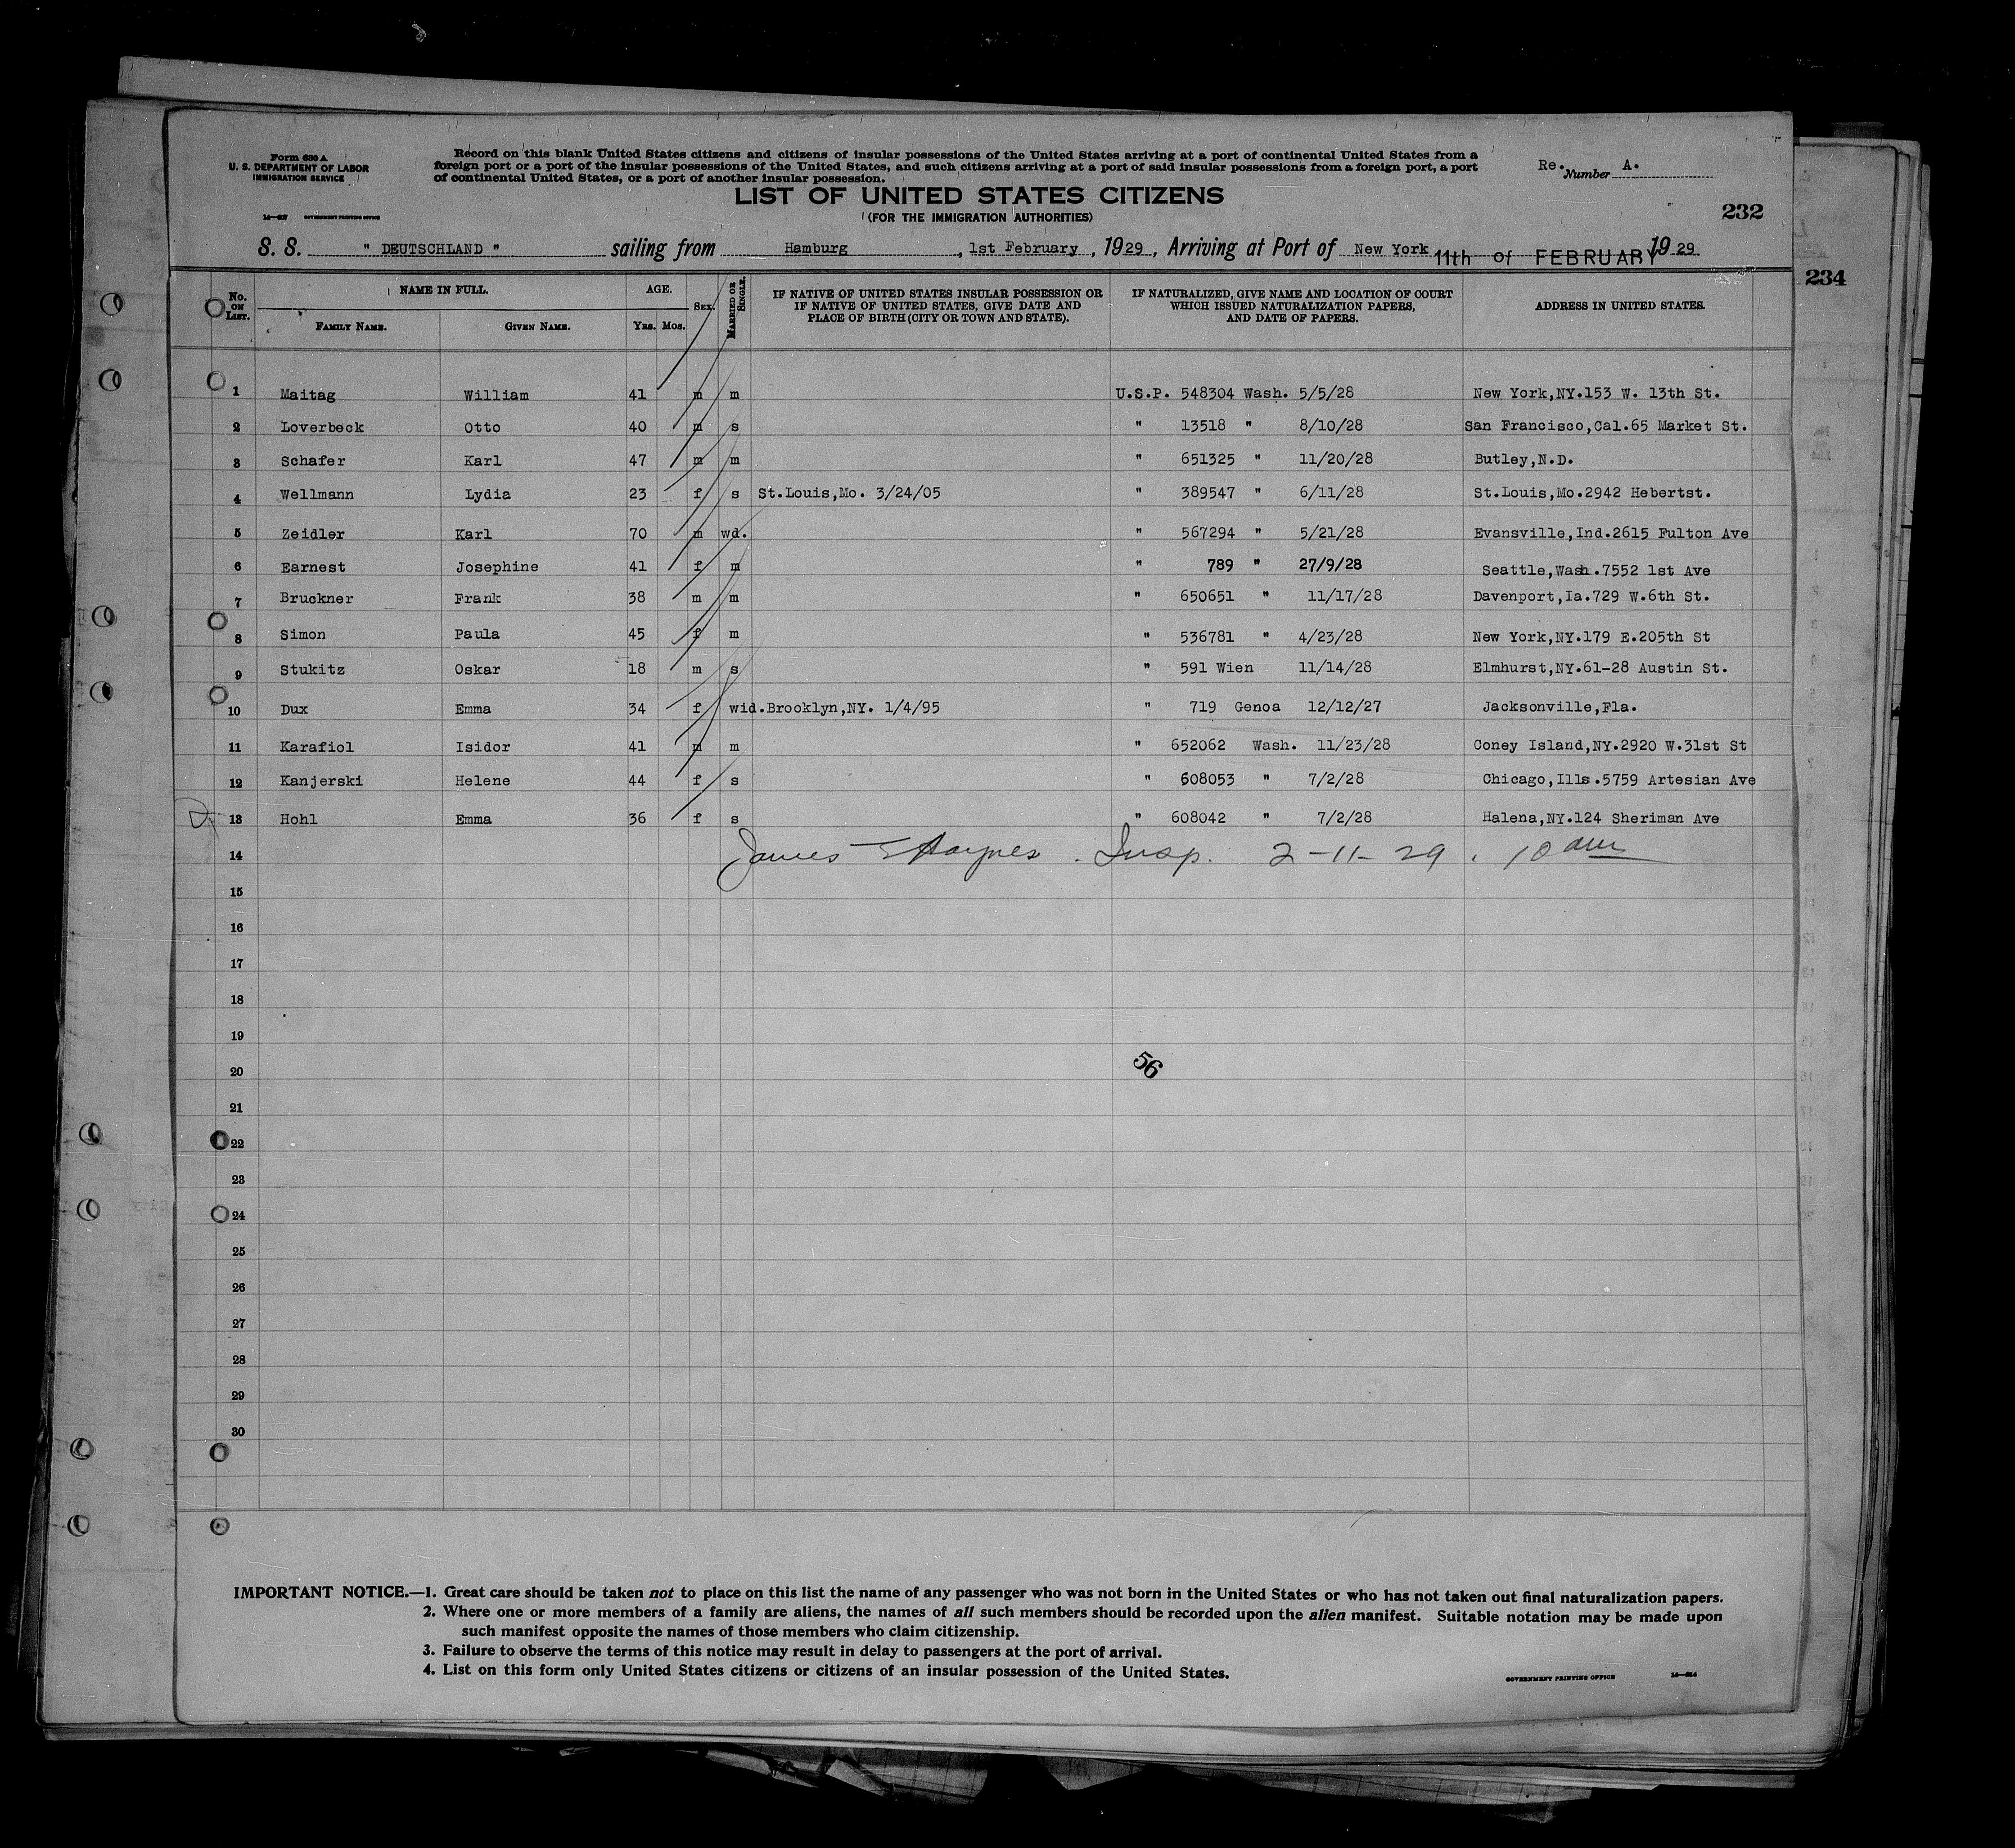 Form 630 A
U. S. DEPARTMENT OF LABOR
IMMIGRATION SERVICE
Record on this blank United States citizens and citizens of insular possessions of the United States arriving at a port of continental United States from a
foreign port or a port of the insular possessions of the United States, and such citizens arriving at a port of said insular possessions from a foreign port, a port
of continental United States, or a port of another insular possession.
Re. Number A.
LIST OF UNITED STATES CITIZENS
(FOR THE IMMIGRATION AUTHORITIES)
GOVERNMENT PRINTING OFFICE
232
S. S. " DEUTSCHLAND " sailing from Hamburg, 1st February, 1929, Arriving at Port of New York 11th of FEBRUARY 1929
234
No. ON LIST. NAME IN FULL. AGE. SEX. MARRIED OR SINGLE. IF NATIVE OF UNITED STATES INSULAR POSSESSION OR IF NATIVE OF UNITED STATES, GIVE DATE AND PLACE OF BIRTH (CITY OR TOWN AND STATE). IF NATURALIZED, GIVE NAME AND LOCATION OF COURT WHICH ISSUED NATURALIZATION PAPERS, AND DATE OF PAPERS. ADDRESS IN UNITED STATES.
FAMILY NAME. GIVEN NAME. YRS. MOS.
1 Maitag William 41 m m U.S.P. 548304 Wash. 5/5/28 New York,NY.153 W. 13th St.
2 Loverbeck Otto 40 m s " 13518 " 8/10/28 San Francisco,Cal.65 Market St.
3 Schafer Karl 47 m m " 651325 " 11/20/28 Butley,N.D.
4 Wellmann Lydia 23 f s St.Louis,Mo. 3/24/05 " 389547 " 6/11/28 St.Louis,Mo.2942 Hebertst.
5 Zeidler Karl 70 m wd. " 567294 " 5/21/28 Evansville,Ind.2615 Fulton Ave
6 Earnest Josephine 41 f m " 789 " 27/9/28 Seattle,Wash.7552 1st Ave
7 Bruckner Frank 38 m m " 650651 " 11/17/28 Davenport,Ia.729 W.6th St.
8 Simon Paula 45 f m " 536781 " 4/23/28 New York,NY.179 E.205th St
9 Stukitz Oskar 18 m s " 591 Wien 11/14/28 Elmhurst,NY.61-28 Austin St.
10 Dux Emma 34 f wid. Brooklyn,NY. 1/4/95 " 719 Genoa 12/12/27 Jacksonville,Fla.
11 Karafiol Isidor 41 m m " 652062 Wash. 11/23/28 Coney Island,NY.2920 W.31st St
12 Kanjerski Helene 44 f s " 608053 " 7/2/28 Chicago,Ills.5759 Artesian Ave
13 Hohl Emma 36 f s " 608042 " 7/2/28 Halena,NY.124 Sheriman Ave
14 James Haynes. Insp. 2-11-29. 10 am
15
16
17
18
19
20
56
21
22
23
24
25
26
27
28
29
30
IMPORTANT NOTICE.—1. Great care should be taken not to place on this list the name of any passenger who was not born in the United States or who has not taken out final naturalization papers.
2. Where one or more members of a family are aliens, the names of all such members should be recorded upon the alien manifest. Suitable notation may be made upon
such manifest opposite the names of those members who claim citizenship.
3. Failure to observe the terms of this notice may result in delay to passengers at the port of arrival.
4. List on this form only United States citizens or citizens of an insular possession of the United States.
GOVERNMENT PRINTING OFFICE